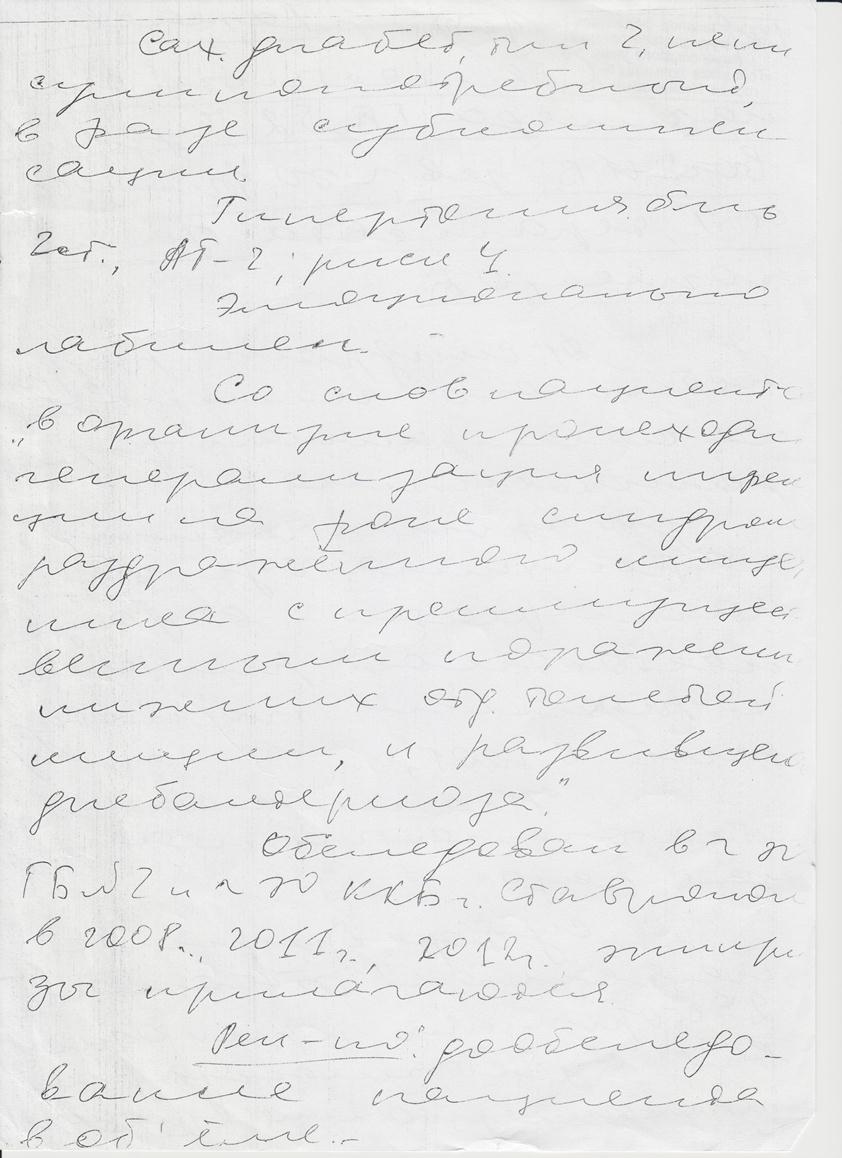 Сах. диабет, тип 2, неин
сулинопотребный,
в фазе субкомпен
сации.
Гипертон. б-нь
2ст., АГ-2, риск 4.
Эмоционально
лабилен.
Со слов пациента
„в организме происходи
генерализация инфек
ции на фоне синдром
раздражённого кише
чника с преимущест
венным поражени
нижних отд. толстой
кишки, и развившем
дисбактериоза."
Обследован в
ГБ №2 и ККБ г. Ставропол
в 2008г., 2011г., 2012г. эпикри
зы прилагаются.
Рек-но: дообследо-
вание пациента
в объёме.-